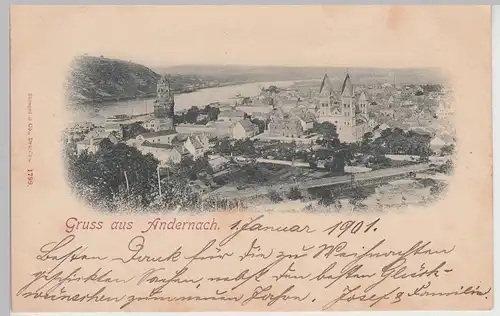 Gruss aus Andernach. 1. Januar 1901.
Besten Dank für die zu Weihnachten
geschickten Sachen, nebst den besten Glück-
wünschen zum neuen Jahre. Josef & Familie.
1799